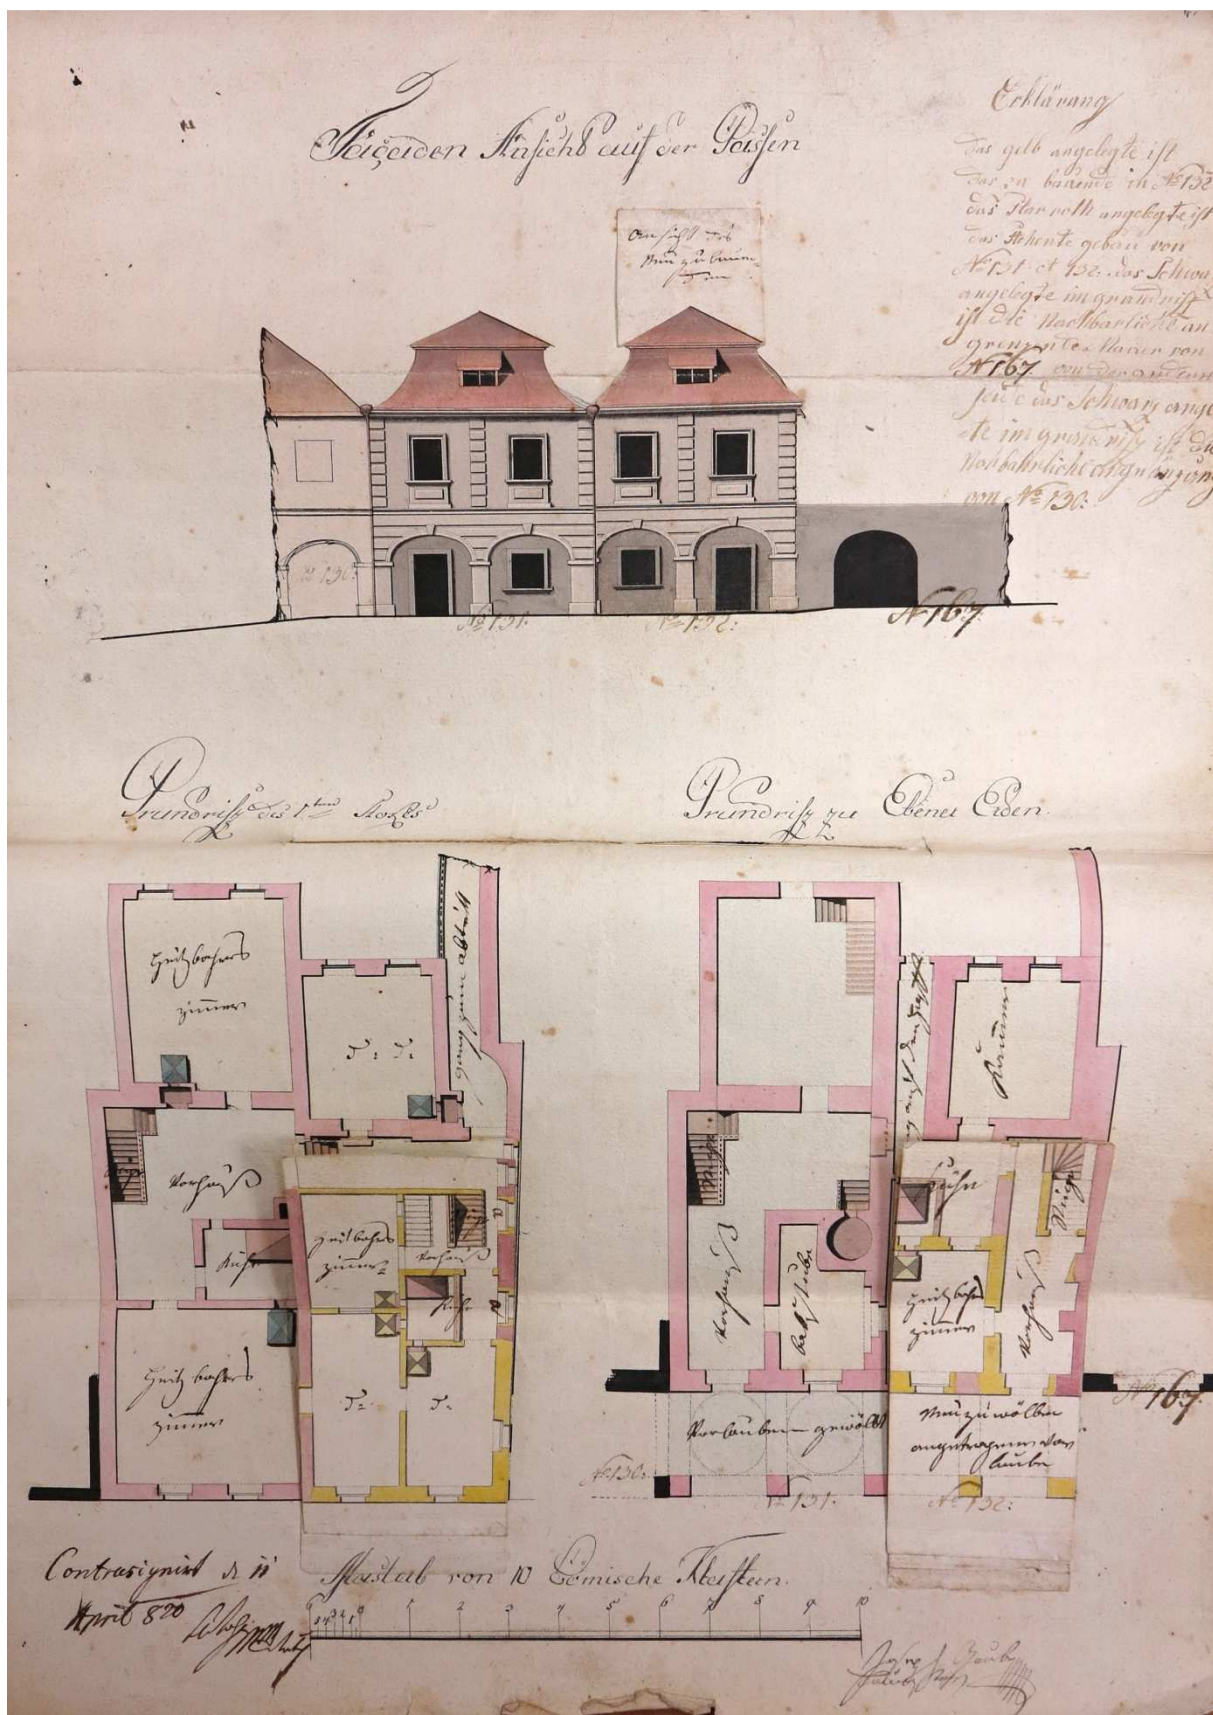 Façaden Ansicht auf der Gassen
Erklärung
das gelb angelegte ist
das zu bauende in No 132
das Blas roth angelegte ist
das Stehente gebau von
No 131 et 132: das Schwa
angelegte im grundriss
ist die Nachbarliche an
grenznte Mauer von
N 167 von der andern
seite das Schwarz ange
te im grundriss ist die
Nachbahrliche
von No 130:
Ansicht des
Neu zu bauen
No 130:
No 131:
No 132:
N 167
Grundriss des 1ten Stokes
Grundriss zu Ebener Erden
Heitzbahres
zimmer
d: d:
gang zum abtritt
Kammer
Vorhauß
Kuchl
Heitzbahres
zimmer
Heitzbahres
zimmer
Stiege
Vorhauß
Kuchl
a
a
d:
d:
Heitz bahres
zimmer
Kuchl
Stiege
Stiege
Vorhauß
Vorhauß
No 167
Vorlauben gewölbt
Neu zu wölben
angetragene Vor
laube
No 130:
No 131:
No 132:
Contrasignirt d: 11
April 820
Mastab von 10 Bömische Klaftern.
6 5 4 3 2 1 0 1 2 3 4 5 6 7 8 9 10
Joseph